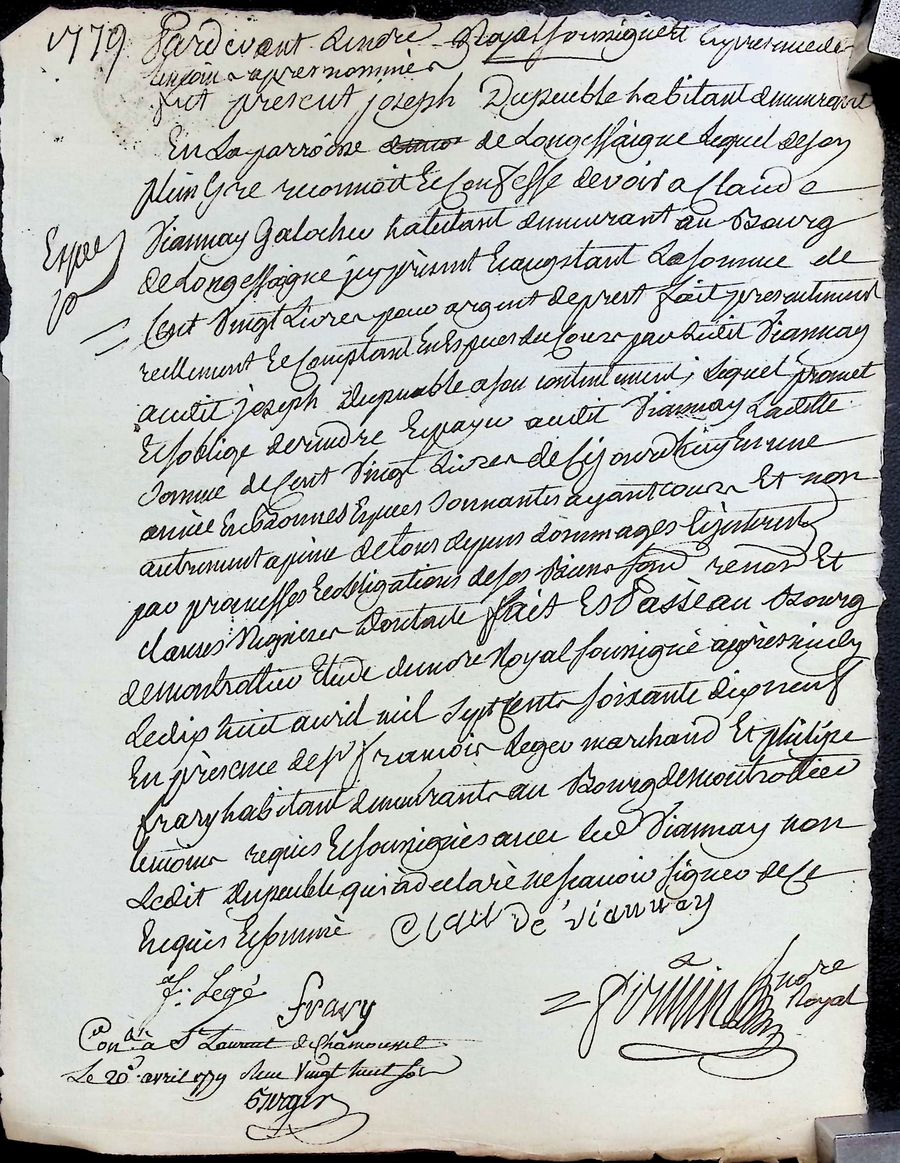 1779 Pardevant Le notre Royal soussigné Et en presence des
temoins apres nommés
fut present joseph Dupeuble habitant demeurant
En La parroisse de Longessaigne Lequel de son
plein Gre reconnoit Et Confesse devoir a Claude
Viannay Galochier habitant demeurant au Bourg
Expée
de Longessaigne icy present Et acceptant La somme de
Cent Vingt Livres pour argent de prest fait presentement
reellement Et Comptant En Especes du Cours par Ledit Viannay
audit joseph Dupeuble a son contentement, Lequel promet
Et s'oblige de rendre Et payer audit Viannay Laditte
somme de Cent Vingt Livres de Cejourdhuy En une
année En Bonnes Especes sonnantes ayant cours Et non
autrement a peine de tous depens dommages Et jnterests
par promesses Et obligations de ses Biens soud renon Et
clauses fait Et Passé au Bourg
de montrotier Etude du notre Royal soussigné apres midy
Le dix huit avril mil sept Cents soixante dix neuf
En presence de sr francois Leger marchand Et philipe
frary habitant demeurants au Bourg de montrottier
temoins requis Et soussignés avec Led Viannay non
Ledit Dupeuble qui a declaré ne scavoir signer de Ce
Enquis Et sommé Claude viannay
f. Legé
frary
notre
Royal
Conlé a St Laurent de Chamousset
Le 20e avril 1779 Reçu Vingt huit sols